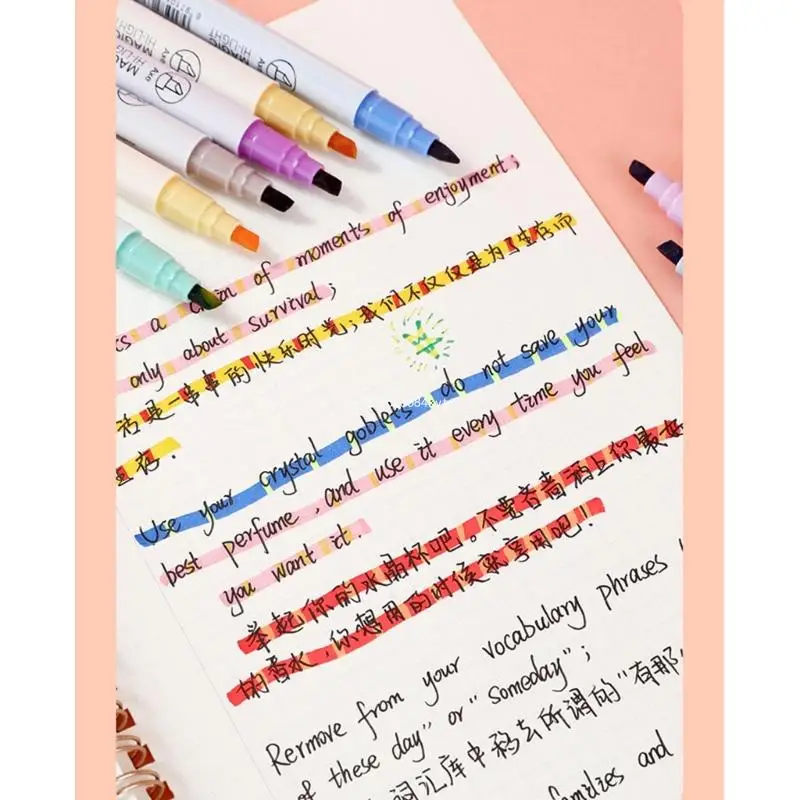 MAGIC
HI-LIGHT
MAGIC
HI-LIGHT
of moments of enjoyment;
only about survival;
活是一串串的快乐时光;我们不仅仅是为了生存而
生存.
Use your crystal goblets. do not save your
best perfume, and use it every time you feel
you want it.
举起你的水晶杯吧!不要吝啬洒上你最好
的香水,你想用的时候就享用吧!
Rermove from your vocabulary phrases
of these day" or "someday";
词汇库中移去所谓的"有那
families and